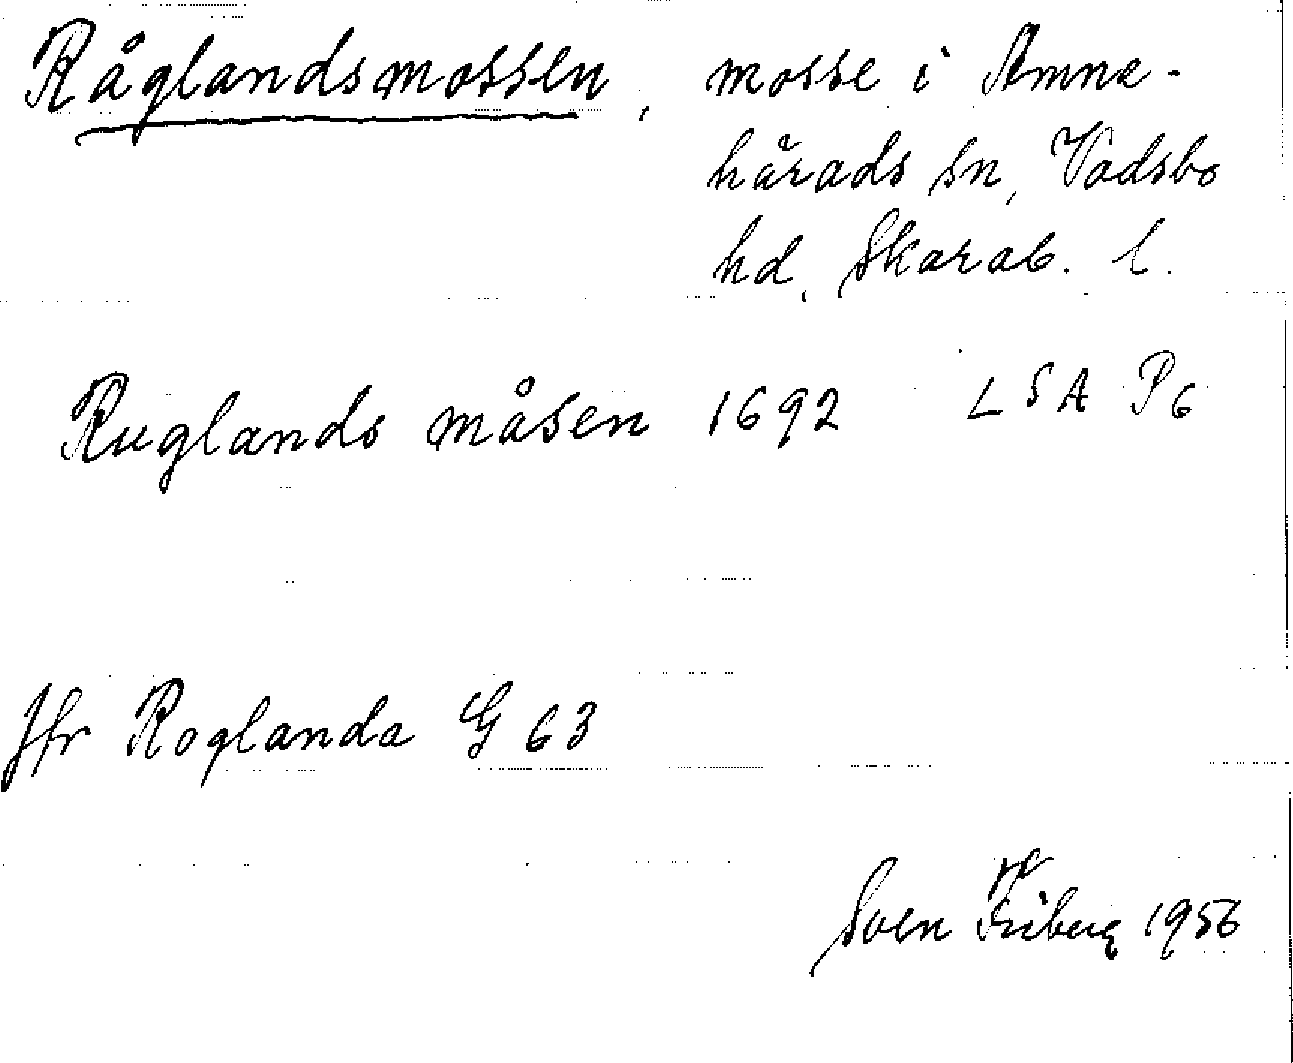 Råglandsmossen, mosse i Amne-
härads sn, Vadsbo
hd, Skarab. l.
Ruglands måsen 1692 LSA P6
Jfr Roglanda G 63
Sven Friberg 1956